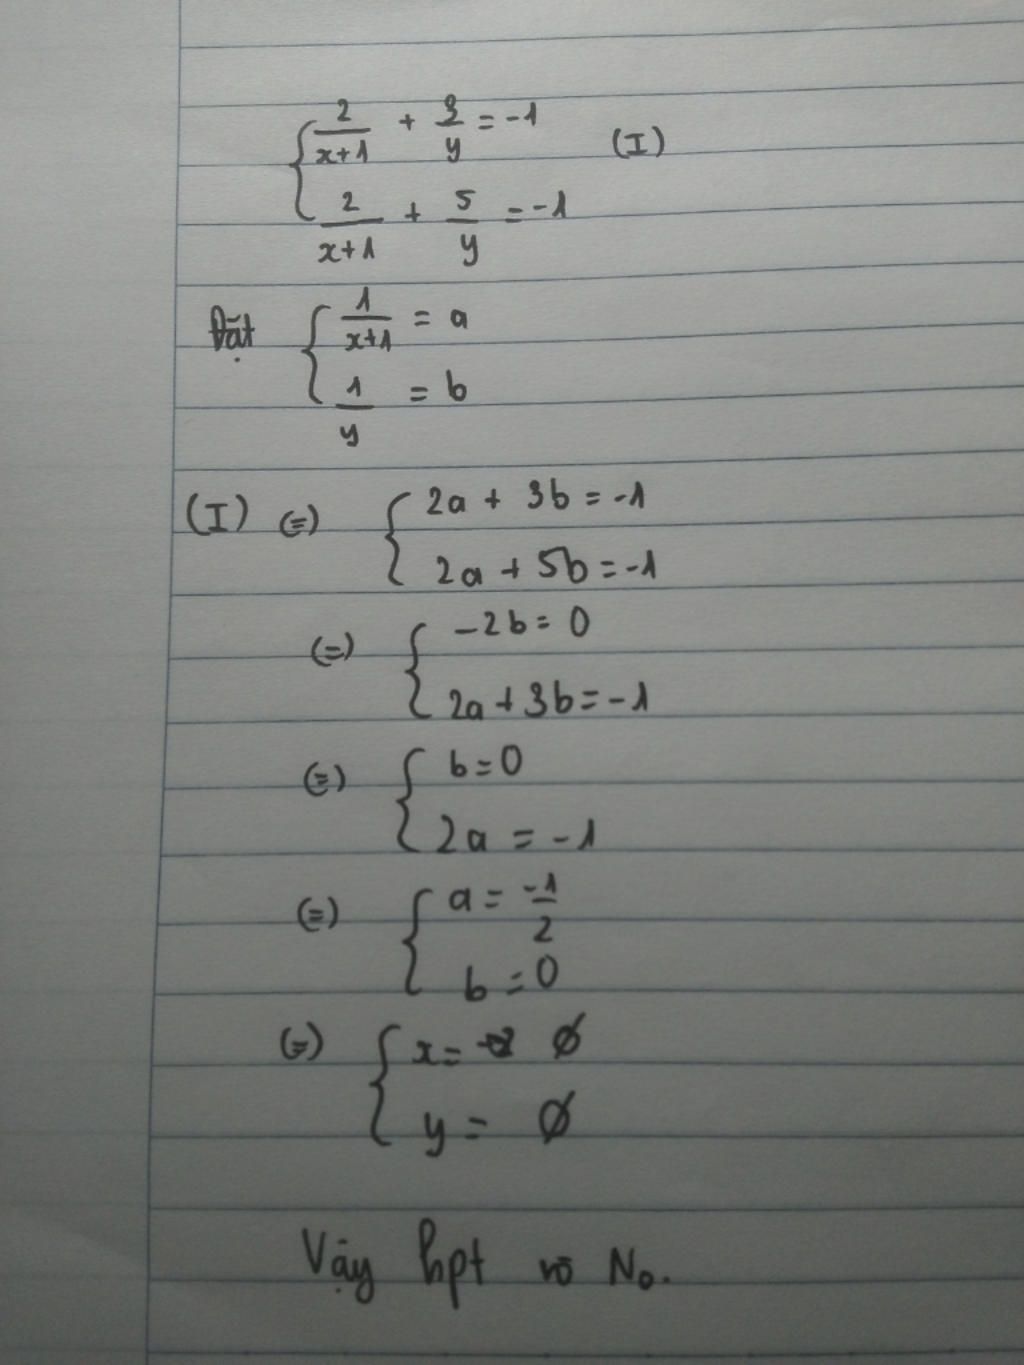 { 2/(x+1) + 3/y = -1 (I)
2/(x+1) + 5/y = -1
Đặt { 1/(x+1) = a
1/y = b
(I) (=) { 2a + 3b = -1
2a + 5b = -1
(=) { -2b = 0
2a + 3b = -1
(=) { b = 0
2a = -1
(=) { a = -1/2
b = 0
(=) { x = Ø
y = Ø
Vậy hpt vô No.